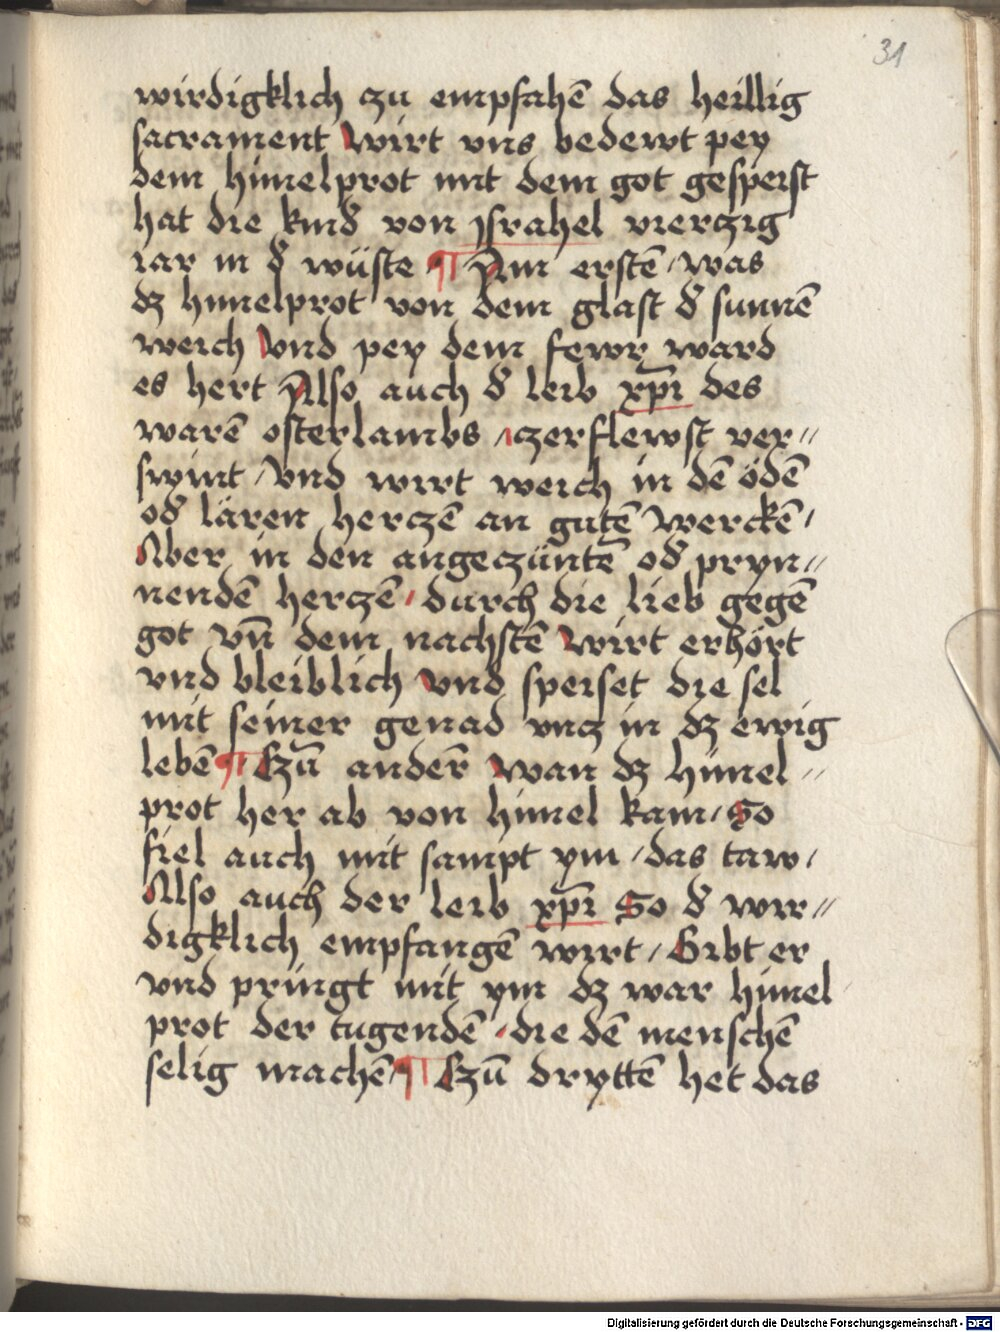 31
wirdigklich zu empfahē das heillig
sacrament wirt vns bedewt pey
dem himelprot mit dem got gespeist
hat die kind̄ von jsrahel vierczig
iar in d̄ wüste ¶ Am erstē / was
dz himelprot von dem glast d̄ sunnē
weich Vnd pey dem fewr ward
es hert Also auch d̄ leib xp̄i des
warē osterlambs / czerflewst ver//
swint / Vnd wirt weich in dē ödē
od̄ lären herczē an gutē werckē /
Aber in den angeczüntē od̄ pryn//
nendē herczē / durch die lieb gegē
got vn̄ dem nachstē wirt erhört
vnd bleiblich vnd speiset die sel
mit seiner genad vncz in dz ewig
lebē ¶ Czū anderr̄ wan dz himel //
prot her ab von himel kam / So
fiel auch mit sampt ym / das taw /
Also auch der leib xp̄i So d̄ wir//
digklich empfangē wirt / Gibt er
vnd pringt mit ym dz war himel /
prot der tugendē / die dē menschē
selig machē ¶ Czū dryttē het das
Digitalisierung gefördert durch die Deutsche Forschungsgemeinschaft - DFG